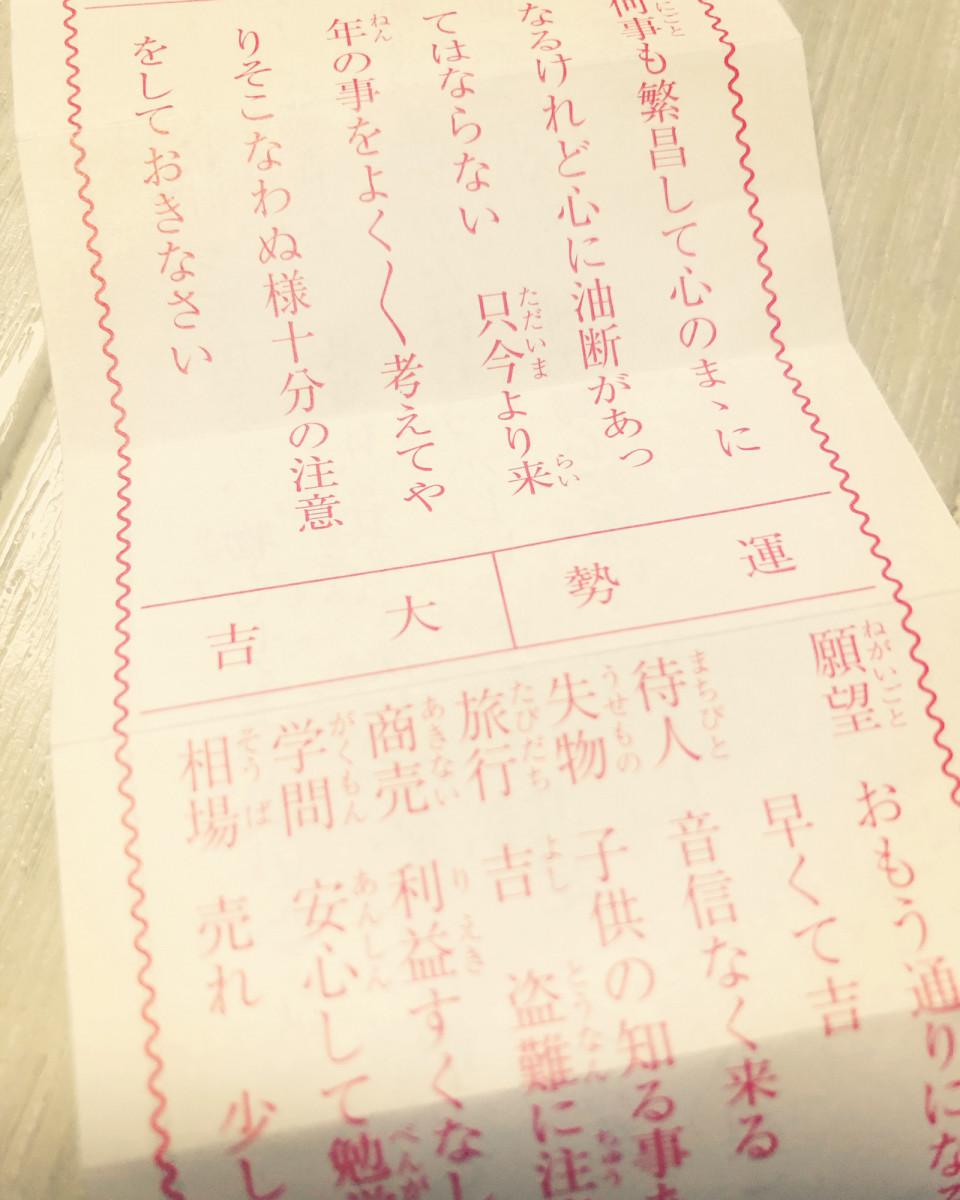 何事も繁昌して心のまゝに
なるけれど心に油断があっ
てはならない 只今より来
年の事をよく〱考えてや
りそこなわぬ様十分の注意
をしておきなさい
運勢 大吉
願望 おもう通りになる
早くて吉
待人 音信なく来る
失物 子供の知る事
旅行 吉 盗難に注
商売 利益すくなし
学問 安心して勉
相場 売れ 少し